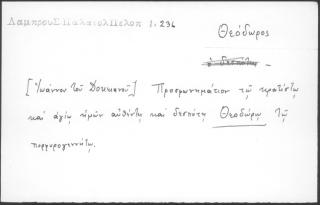 Λαμπρου Σ Παλαιολ Πελοπ 1. 236
Θεόδωρος
ὁ δεσπότης
[Ἰωάννου τοῦ Δοκιανοῦ] Προσφωνημάτιον τῷ κρατίστῳ
καὶ ἁγίῳ ἡμῶν αὐθέντῃ καὶ δεσπότῃ Θεοδώρῳ τῷ
πορφυρογεννήτῳ.